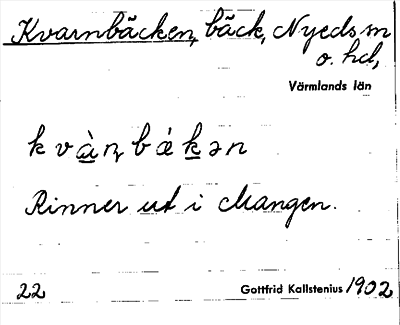 Kvarnbäcken, bäck, Nyeds sn
o. hd,
Värmlands län
kvà̤ɳbǽkən
Rinner ut i Mangen.
22 Gottfrid Kallstenius 1902